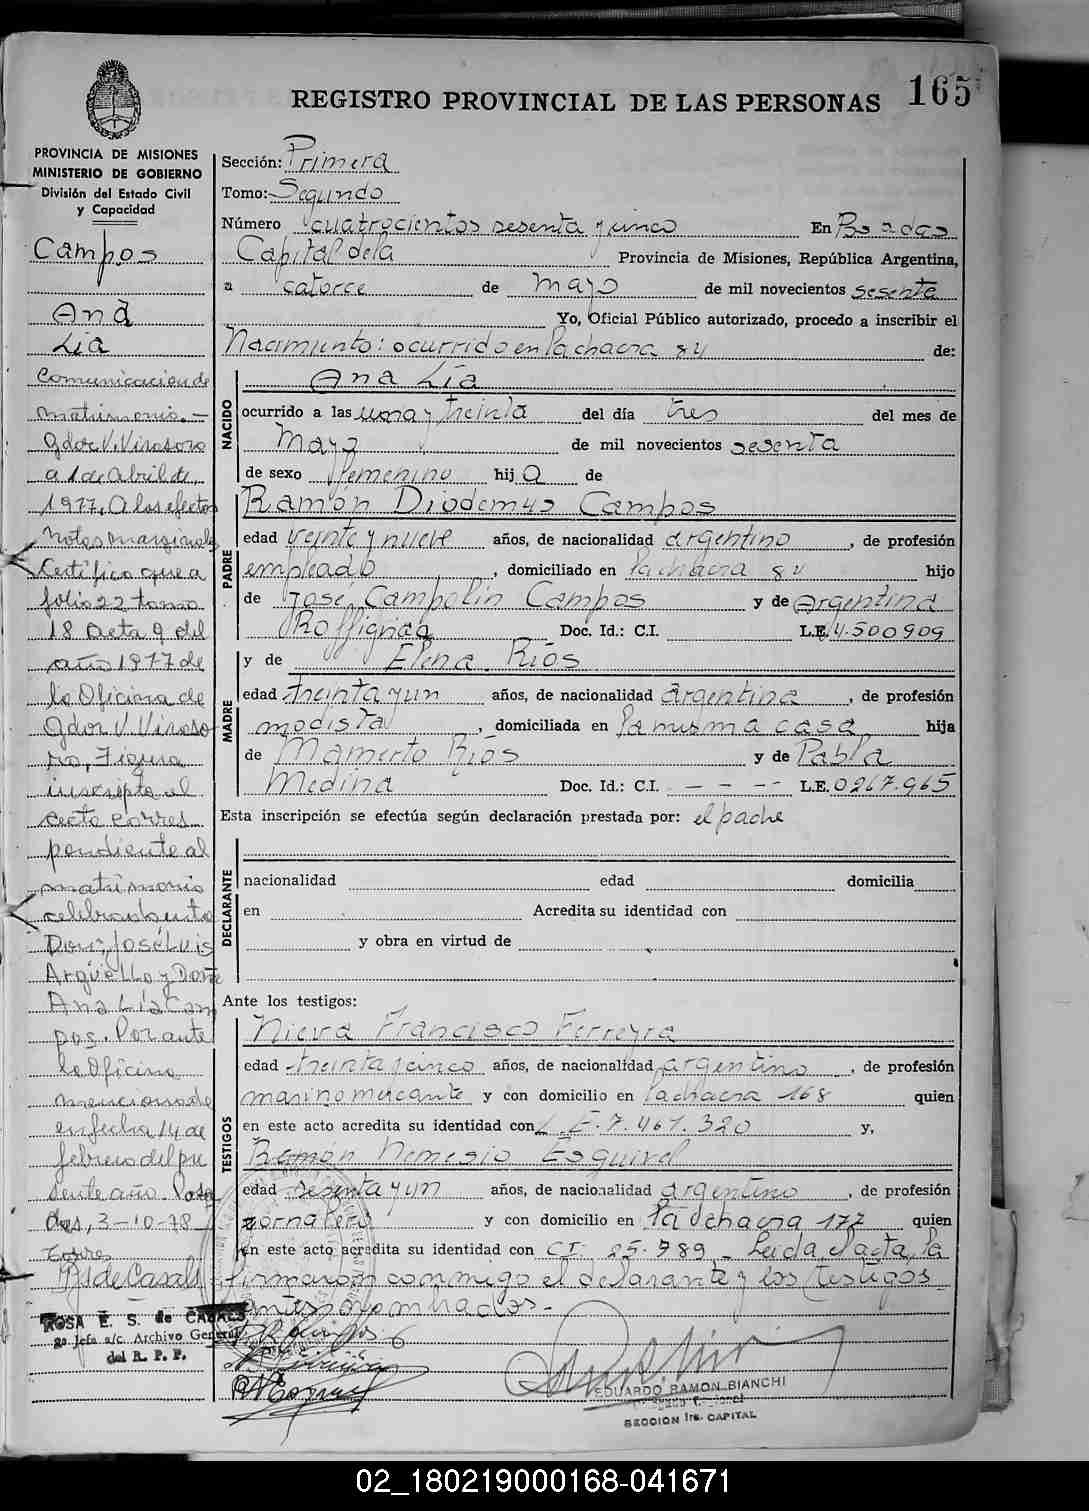 165
REGISTRO PROVINCIAL DE LAS PERSONAS
PROVINCIA DE MISIONES
MINISTERIO DE GOBIERNO
División del Estado Civil
y Capacidad
Campos
Ana
Lía
Comunicacion de
matrimonio.—
Gdor V. Virasoro
a 1 de Abril de
1977. A los efectos
Notas marginales
Certifico que a
folio 22 tomo
18 Acta 9 del
año 1977 de
la Oficina de
Gdor V. Viraso
ro, Figura
inscripta el
acta corres
pondiente al
matrimonio
celebrado entre
Don José Luis
Argüello y Doña
Ana Lía Cam
pos. Por ante
la Oficina
mencionada
en fecha 14 de
febrero del pre
sente año. Posa
das, 3-10-78
ROSA E. S. de CASALS
2º Jefa a/c. Archivo General
del R. P. P.
Sección: Primera
Tomo: Segundo
Número cuatrocientos sesenta y cinco En Posadas
Capital de la Provincia de Misiones, República Argentina,
a catorce de mayo de mil novecientos sesenta
Yo, Oficial Público autorizado, procedo a inscribir el
Nacimiento: ocurrido en la chacra 84 de:
NACIDO
Ana Lía
ocurrido a las una y treinta del día tres del mes de
Mayo de mil novecientos sesenta
de sexo femenino hij a de
PADRE
Ramón Diodemus Campos
edad veinte y nueve años, de nacionalidad argentino, de profesión
empleado, domiciliado en la chacra 84 hijo
de José Campolin Campos y de Argentina
Roffignac Doc. Id.: C.I. L.E. 4.500909
MADRE
y de Elena Ríos
edad treinta y un años, de nacionalidad argentina, de profesión
modista, domiciliada en la misma casa hija
de Mamerto Ríos y de Pabla
Medina Doc. Id.: C.I. - - - - L.E. 0267.965
Esta inscripción se efectúa según declaración prestada por: el padre
DECLARANTE
nacionalidad edad domicilia
en Acredita su identidad con
y obra en virtud de
Ante los testigos:
TESTIGOS
Nieva Francisco Ferreyra
edad treinta y cinco años, de nacionalidad argentino, de profesión
marino mercante y con domicilio en la chacra 168 quien
en este acto acredita su identidad con L.E. 7.467.320 y,
Ramón Nemesio Esquivel
edad sesenta y un años, de nacionalidad argentino, de profesión
jornalero y con domicilio en la chacra 177 quien
en este acto acredita su identidad con C.I. 25.989 - Leida el acta, la
firmaron conmigo el declarante y los testigos
antes nombrados.-
EDUARDO RAMON BIANCHI
SECCION 1ra. CAPITAL
02_180219000168-041671